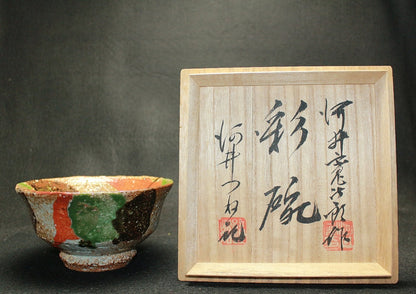 河井寛次郎作
彩碗
河井つね記